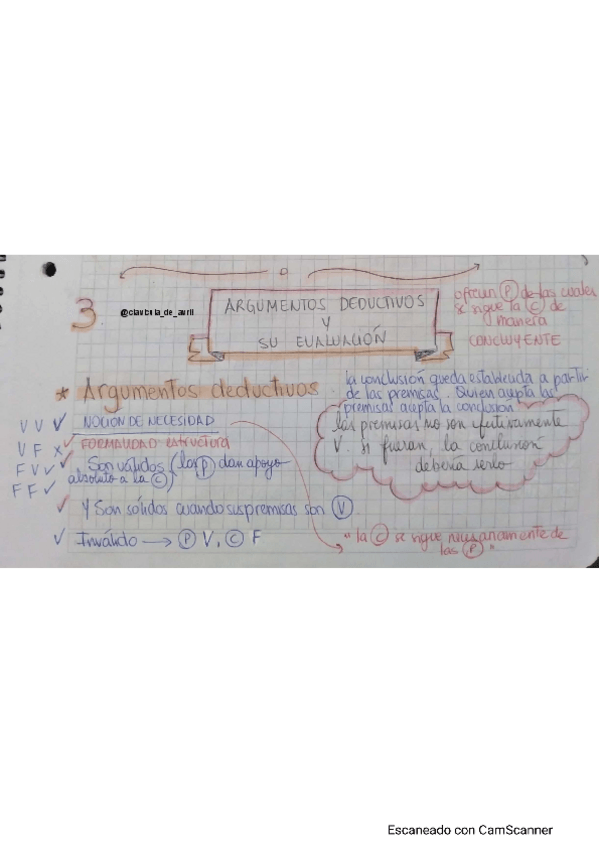 3
@claubula_de_avril
ARGUMENTOS DEDUCTIVOS
Y
SU EVALUACIÓN
ofrecen Ⓟ de las cuales
se sigue la Ⓒ de
manera
CONCLUYENTE
* Argumentos deductivos
la conclusión queda establecida a partir
de las premisas. Quien acepta las
premisas acepta la conclusión
V V ✓
V F x
F V ✓
F F ✓
✓ NOCIÓN DE NECESIDAD
✓ FORMALIDAD ESTRUCTURA
✓ Son válidos (las Ⓟ dan apoyo
absoluto a la Ⓒ)
✓ Y son sólidos cuando sus premisas son Ⓥ
✓ Inválido → Ⓟ V, Ⓒ F
las premisas no son efectivamente
V. si fueran, la conclusión
debería serlo
"la Ⓒ se sigue necesariamente de
las Ⓟ"
Escaneado con CamScanner